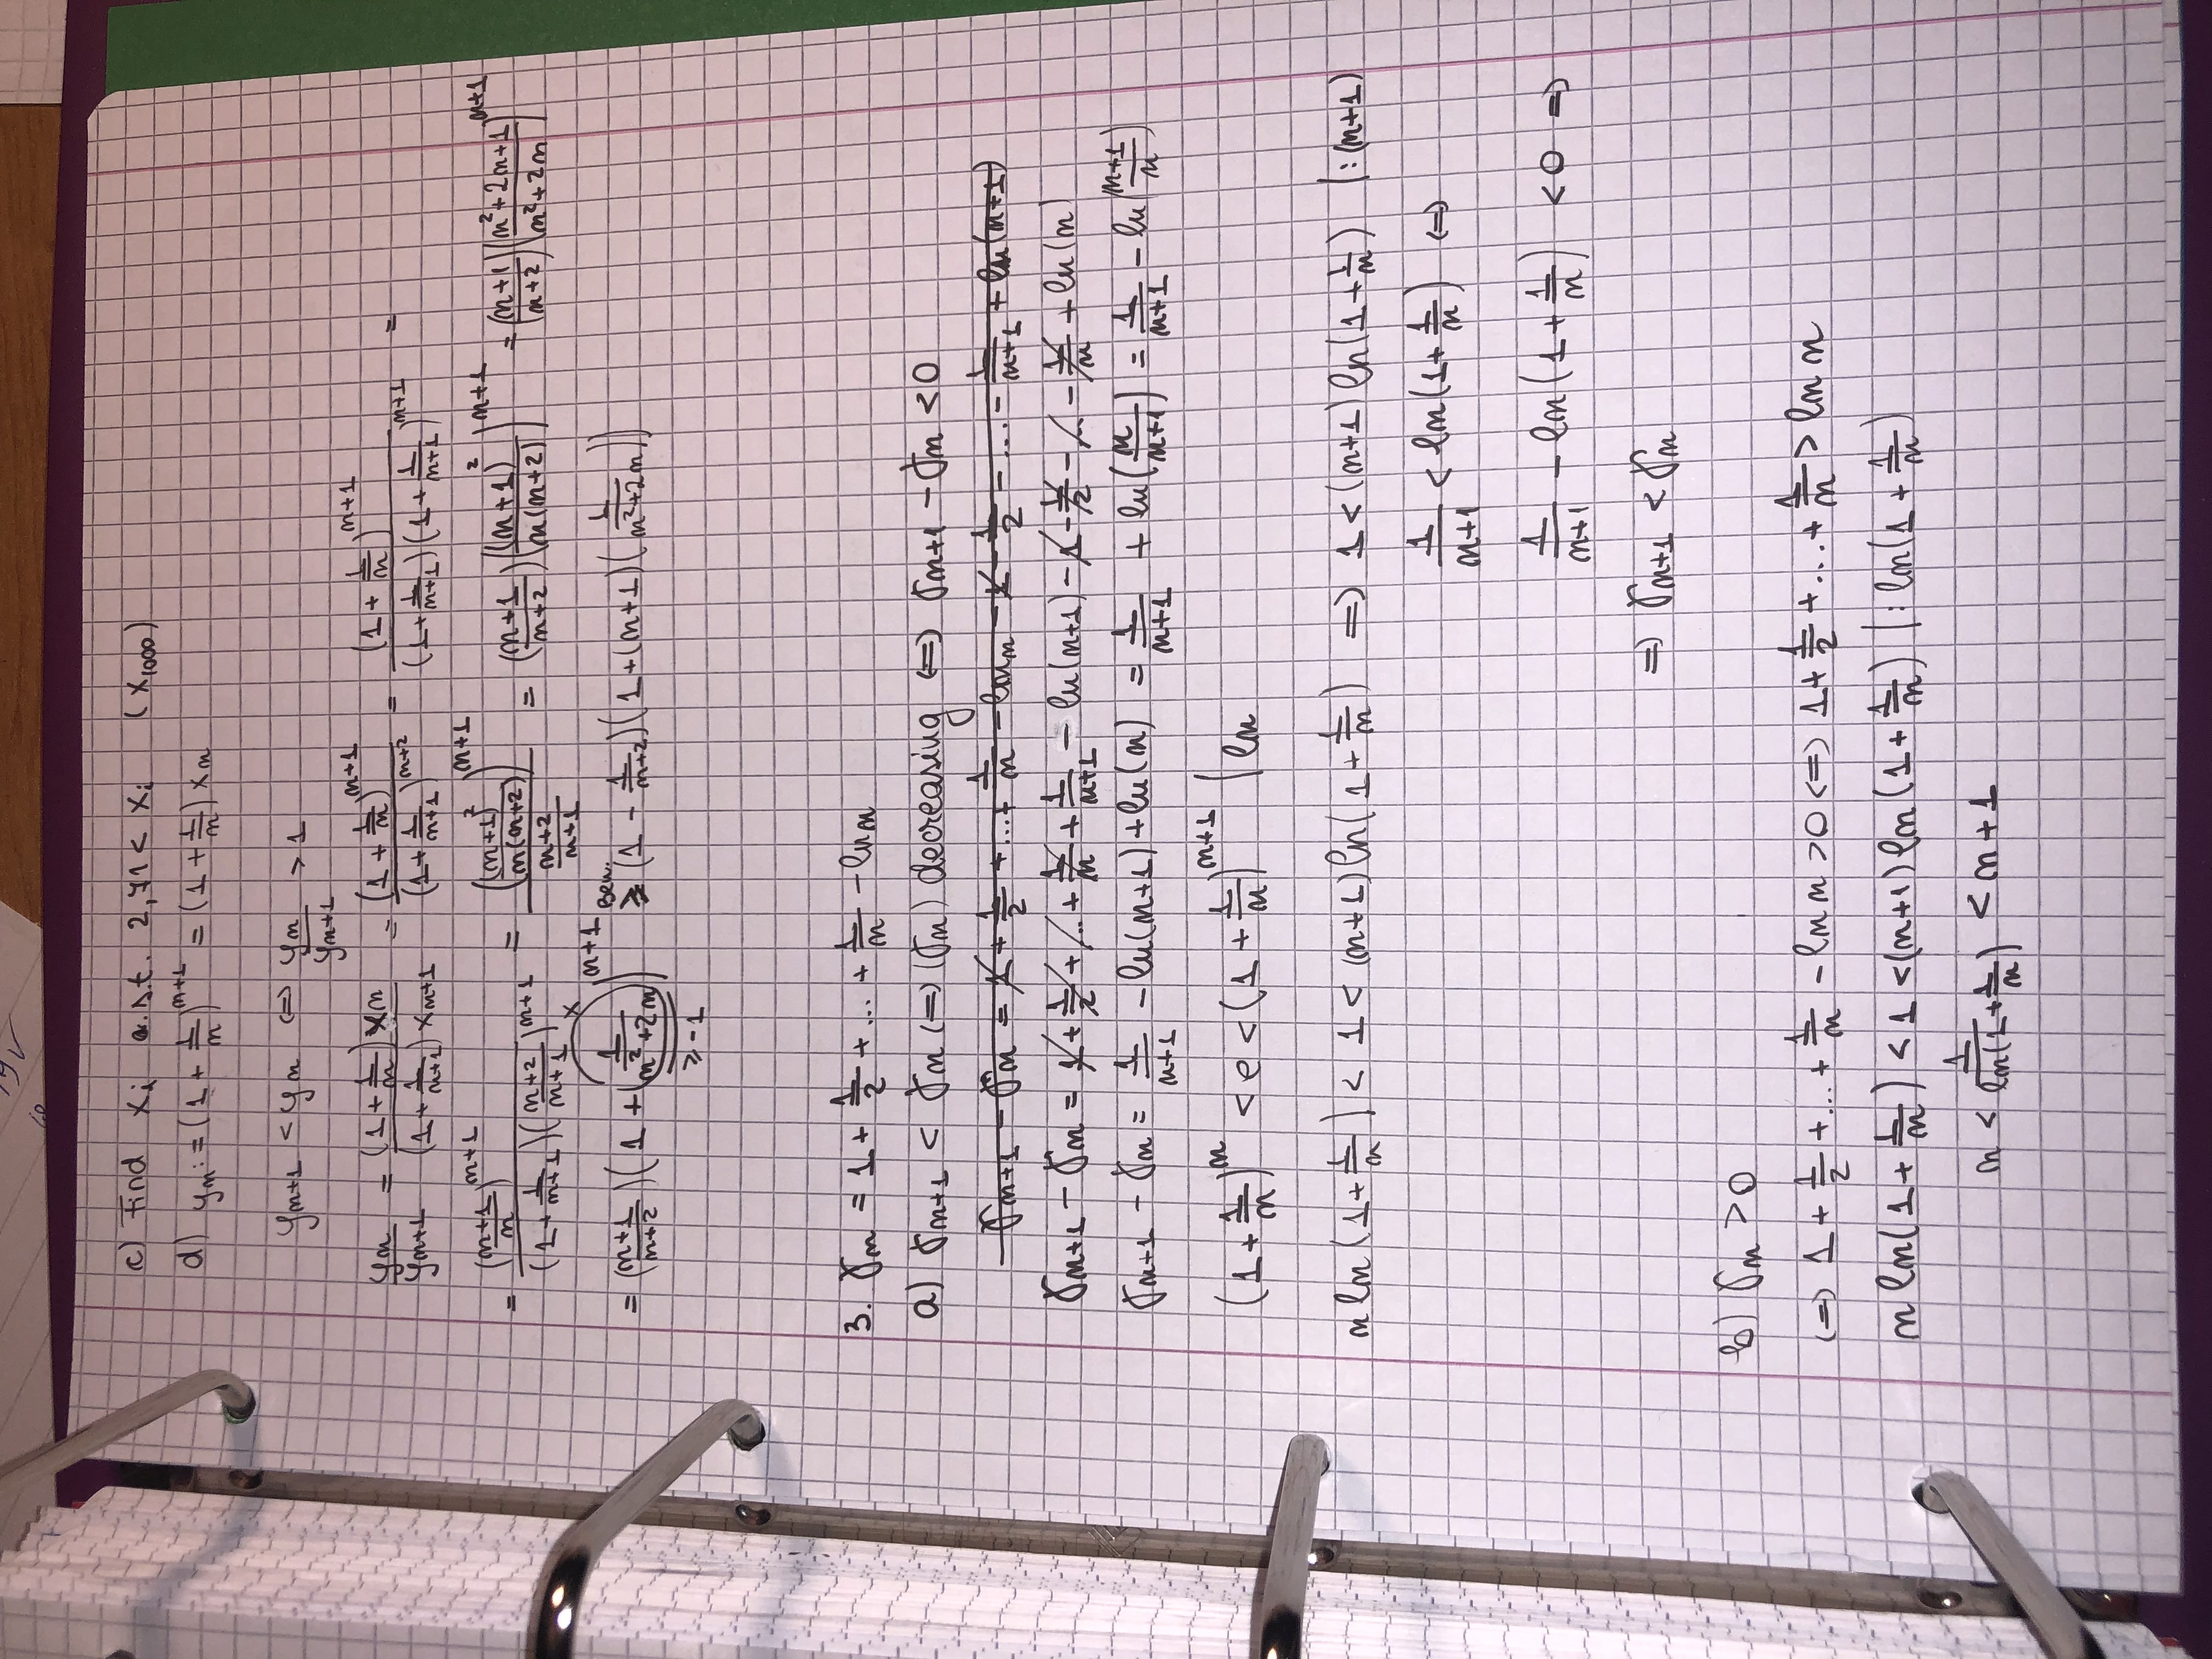 c) Find xᵢ a.s.t. 2,71 < xᵢ (x₁₀₀₀)
d) yₙ := (1 + 1/n)ⁿ⁺¹ = (1 + 1/n) xₙ
yₙ₊₁ < yₙ ⇔ yₙ/yₙ₊₁ > 1
yₙ/yₙ₊₁ = (1 + 1/n) xₙ / (1 + 1/(n+1)) xₙ₊₁ = (1 + 1/n)ⁿ⁺¹ / (1 + 1/(n+1))ⁿ⁺² = (1 + 1/n)ⁿ⁺¹ / (1 + 1/(n+1))(1 + 1/(n+1))ⁿ⁺¹ =
= ((n+1)/n)ⁿ⁺¹ / (1 + 1/(n+1))((n+2)/(n+1))ⁿ⁺¹ = ((n+1)²/n(n+2))ⁿ⁺¹ / ((n+2)/(n+1)) = ((n+1)/(n+2))((n+1)²/n(n+2))ⁿ⁺¹ = ((n+1)/(n+2))((n²+2n+1)/(n²+2n))ⁿ⁺¹
x
= ((n+1)/(n+2))(1 + (1/(n²+2n)))ⁿ⁺¹ Ben. ≥ (1 - 1/(n+2))(1 + (n+1)(1/(n²+2n)))
≥ -1
3. γₙ = 1 + 1/2 + ... + 1/n - ln n
a) γₙ₊₁ < γₙ ⇔ (γₙ) decreasing ⇔ γₙ₊₁ - γₙ < 0
γₙ₊₁ - γₙ = 1 + 1/2 + ... + 1/n - ln n - 1 - 1/2 - ... - 1/(n+1) + ln(n+1)
γₙ₊₁ - γₙ = 1 + 1/2 + ... + 1/n + 1/(n+1) - ln(n+1) - 1 - 1/2 - ... - 1/n + ln(n)
γₙ₊₁ - γₙ = 1/(n+1) - ln(n+1) + ln(n) = 1/(n+1) + ln(n/(n+1)) = 1/(n+1) - ln((n+1)/n)
(1 + 1/n)ⁿ < e < (1 + 1/n)ⁿ⁺¹ | ln
n ln(1 + 1/n) < 1 < (n+1) ln(1 + 1/n) ⇒ 1 < (n+1) ln(1 + 1/n) |:(n+1)
1/(n+1) < ln(1 + 1/n) ⇔
1/(n+1) - ln(1 + 1/n) < 0 ⇒
⇒ γₙ₊₁ < γₙ
b) γₙ > 0
⇔ 1 + 1/2 + ... + 1/n - ln n > 0 ⇔ 1 + 1/2 + ... + 1/n > ln n
n ln(1 + 1/n) < 1 < (n+1) ln(1 + 1/n) |: ln(1 + 1/n)
n < 1/ln(1 + 1/n) < n + 1